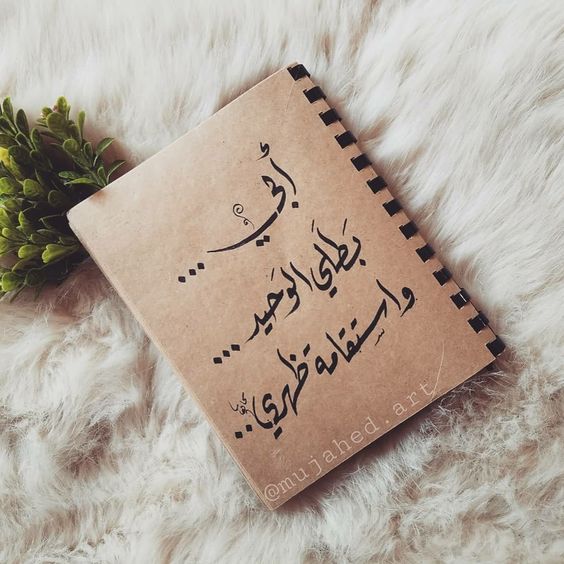 أبي...
بَطَلي الوَحيد...
واستقامة ظهري..
@mujahed.art